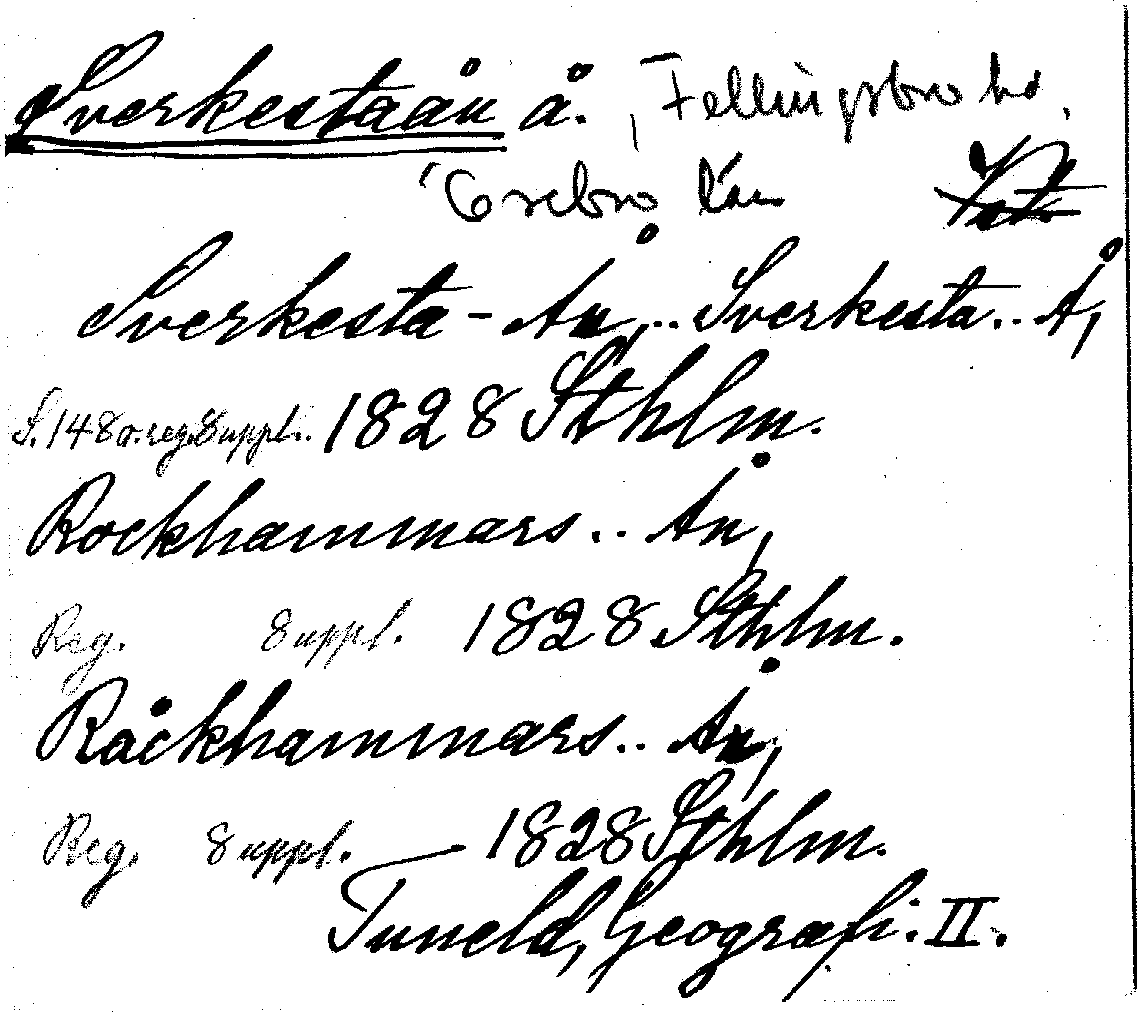 Sverkestaån å., Fellingsbro hd,
Örebro län
Sverkesta-Ån,.. Sverkesta.. Å,
S.148 o. reg. Suppl.. 1828 Sthlm.
Rockhammars.. Ån,
Reg. Suppl. 1828 Sthlm.
Råckhammars.. Ån,
Reg. Suppl. 1828 Sthlm.
Tuneld, Geografi. II.